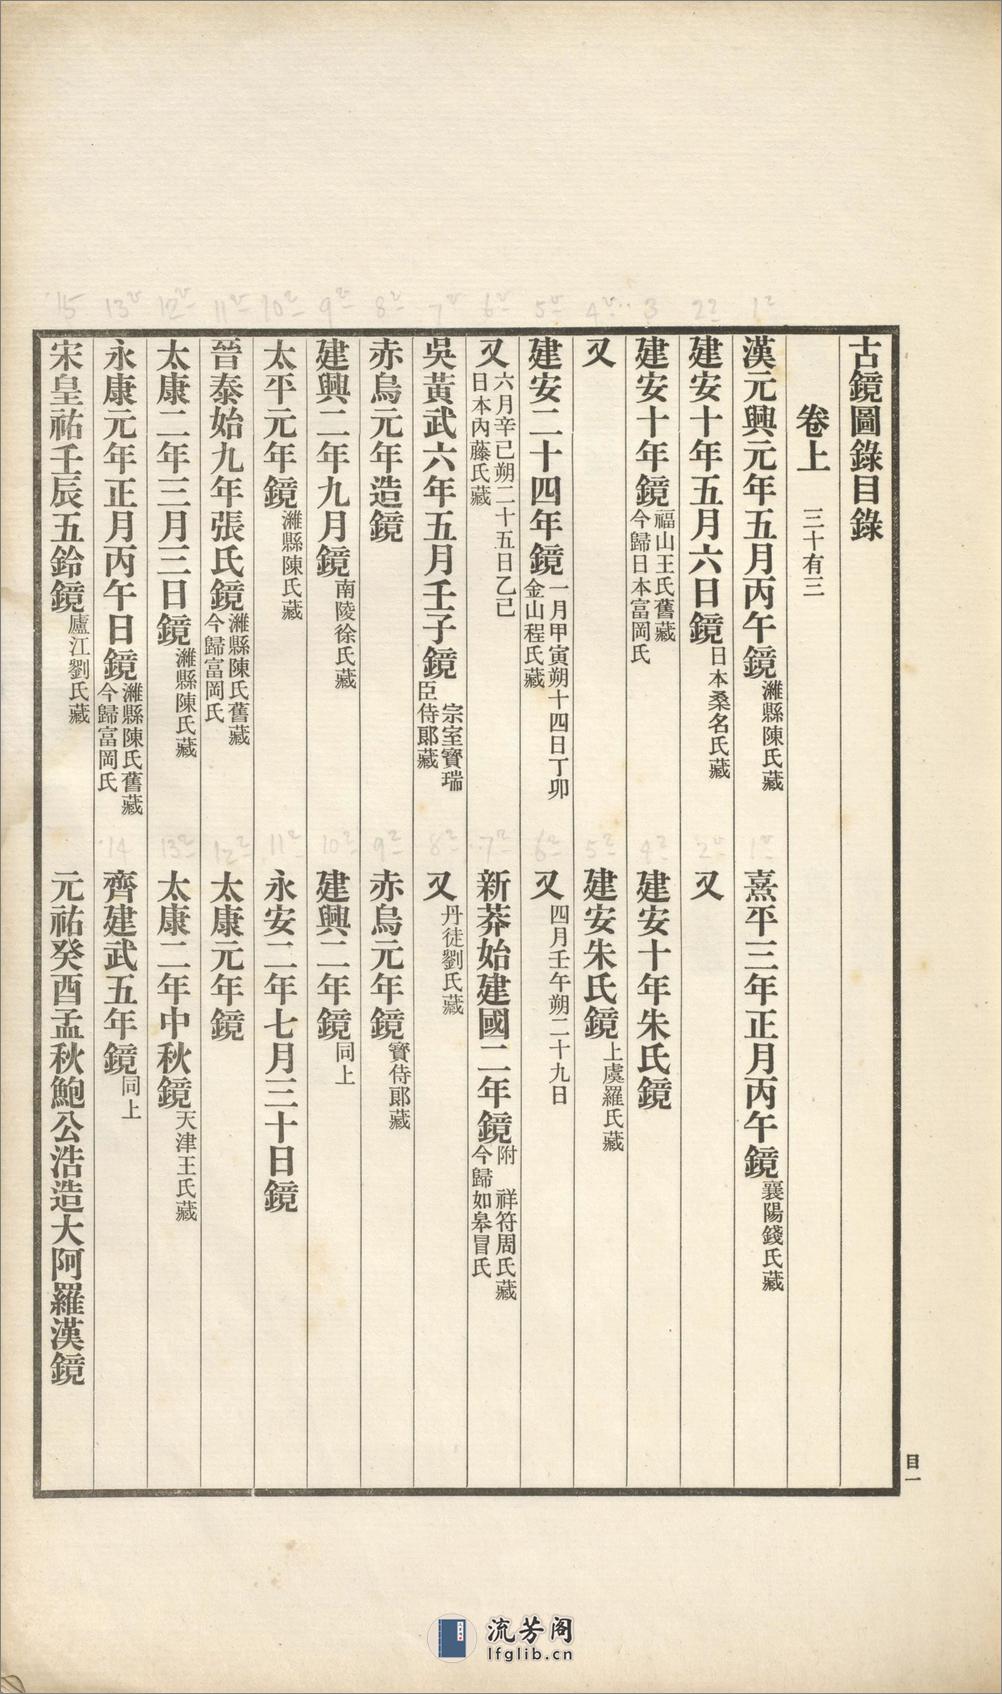 古鏡圖錄目錄
卷上 三十有三
漢元興元年五月丙午鏡 濰縣陳氏藏
熹平三年正月丙午鏡 襄陽錢氏藏
建安十年五月六日鏡 日本桑名氏藏
又
建安十年鏡 福山王氏舊藏 今歸日本富岡氏
建安十年朱氏鏡
又
建安朱氏鏡 上虞羅氏藏
建安二十四年鏡 一月甲寅朔十四日丁卯 金山程氏藏
又 四月壬午朔二十九日
又 六月辛己朔二十五日乙已 日本內藤氏藏
新莽始建國二年鏡 附 祥符周氏藏 今歸如皋冒氏
吳黃武六年五月壬子鏡 宗室寶瑞臣侍郞藏
又 丹徒劉氏藏
赤烏元年造鏡
赤烏元年鏡 寶侍郞藏
建興二年九月鏡 南陵徐氏藏
建興二年鏡 同上
太平元年鏡 濰縣陳氏藏
永安二年七月三十日鏡
晉泰始九年張氏鏡 濰縣陳氏舊藏 今歸富岡氏
太康元年鏡
太康二年三月三日鏡 濰縣陳氏藏
太康二年中秋鏡 天津王氏藏
永康元年正月丙午日鏡 濰縣陳氏舊藏 今歸富岡氏
齊建武五年鏡 同上
宋皇祐壬辰五鈴鏡 廬江劉氏藏
元祐癸酉孟秋鮑公浩造大阿羅漢鏡
目一
流芳阁
lfglib.cn